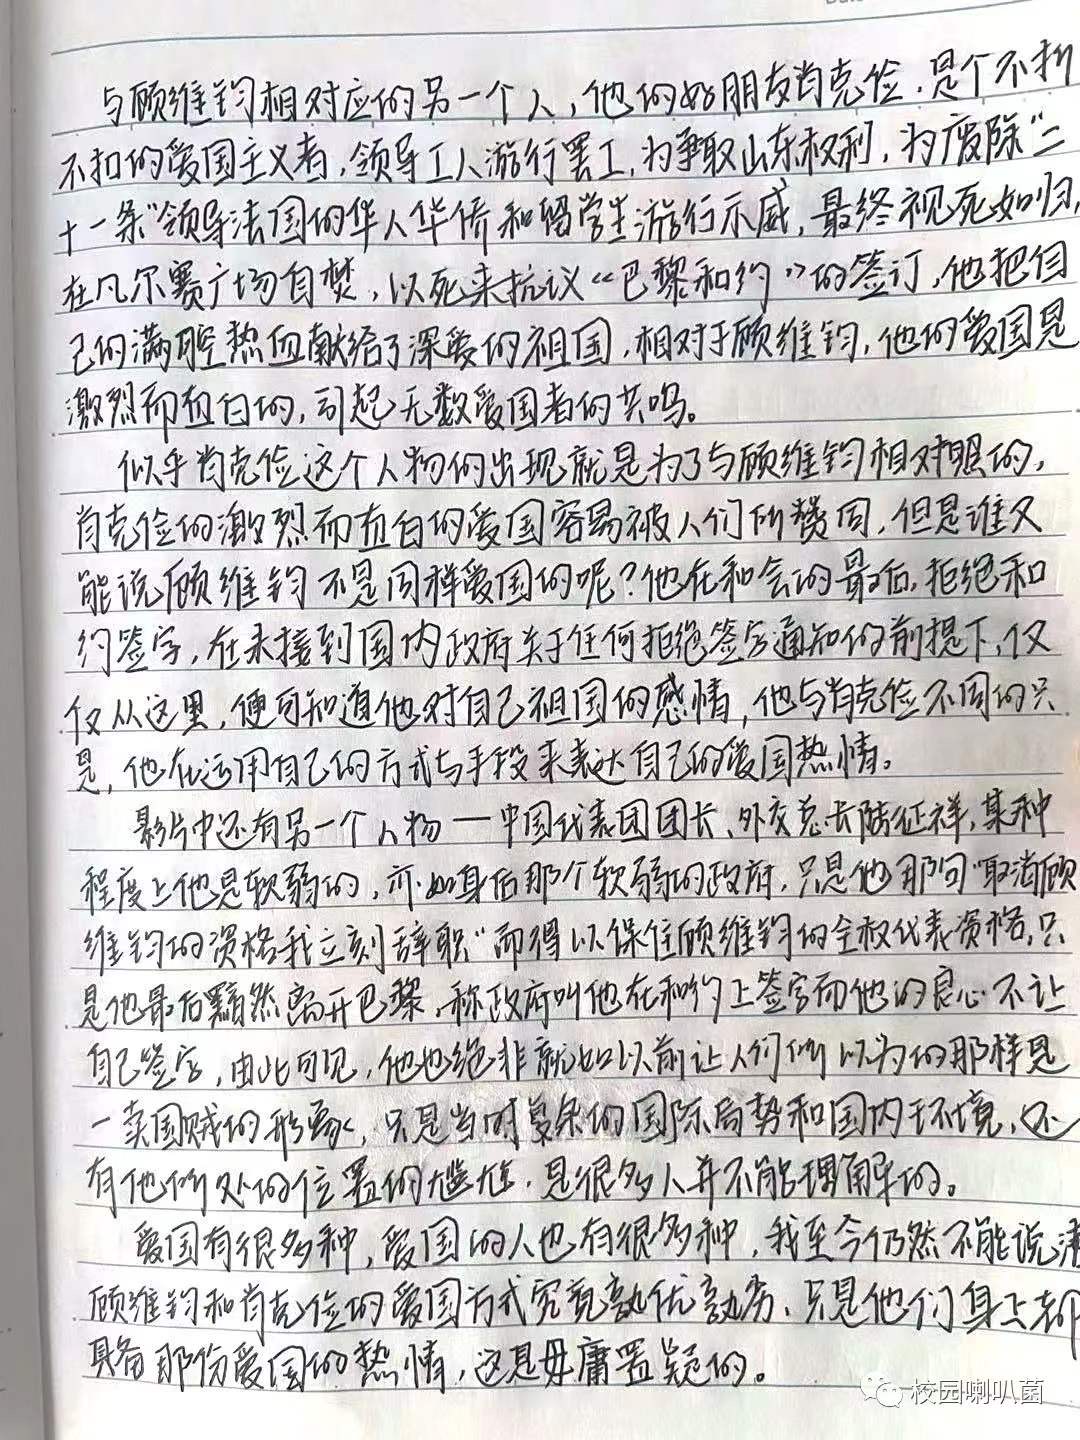 与顾维钧相对应的另一个人，他的好朋友肖克俭，是个不折
不扣的爱国主义者，领导工人游行罢工，为争取山东权利，为废除"二
十一条"领导法国的华人华侨和留学生游行示威，最终视死如归，
在凡尔赛广场自焚，以死来抗议“巴黎和约”的签订，他把自
己的满腔热血献给了深爱的祖国，相对于顾维钧，他的爱国是
激烈而直白的，引起无数爱国者的共鸣。
似乎肖克俭这个人物的出现就是为了与顾维钧相对照的，
肖克俭的激烈而直白的爱国容易被人们所赞同，但是谁又
能说顾维钧不是同样爱国的呢？他在和会的最后，拒绝和
约签字，在未接到国内政府关于任何拒绝签字通知的前提下，仅
仅从这里，便可知道他对自己祖国的感情，他与肖克俭不同的只
是，他在运用自己的方式与手段来表达自己的爱国热情。
影片中还有另一个人物—中国代表团团长、外交总长陆征祥，某种
程度上他是软弱的，亦如身后那个软弱的政府，只是他那句"取消顾
维钧的资格我立刻辞职"而得以保住顾维钧的全权代表资格，只
是他最后黯然离开巴黎，称政府叫他在和约上签字而他的良心不让
自己签字，由此可见，他也绝非就如以前让人们所以为的那样是
一卖国贼的形象，只是当时复杂的国际局势和国内环境，还
有他所处的位置的尴尬，是很多人并不能理解的。
爱国有很多种，爱国的人也有很多种，我至今仍然不能说清
顾维钧和肖克俭的爱国方式究竟孰优孰劣，只是他们身上都
具备那份爱国的热情，这是毋庸置疑的。
校园喇叭菌